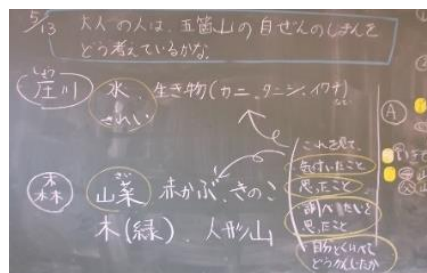 5/13
大人の人は、五箇山の自ぜんのじまんを
どう考えているかな。
しょう
庄川 水、生き物(カニ、タニシ、イワナ)
きれい
森 山菜 赤かぶ、きのこ
さい
木(緑)、人形山
これを見て、
気付いたこと
思ったこと
調べたいと
思ったこと
自分とくらべて
どうかんじたか
A